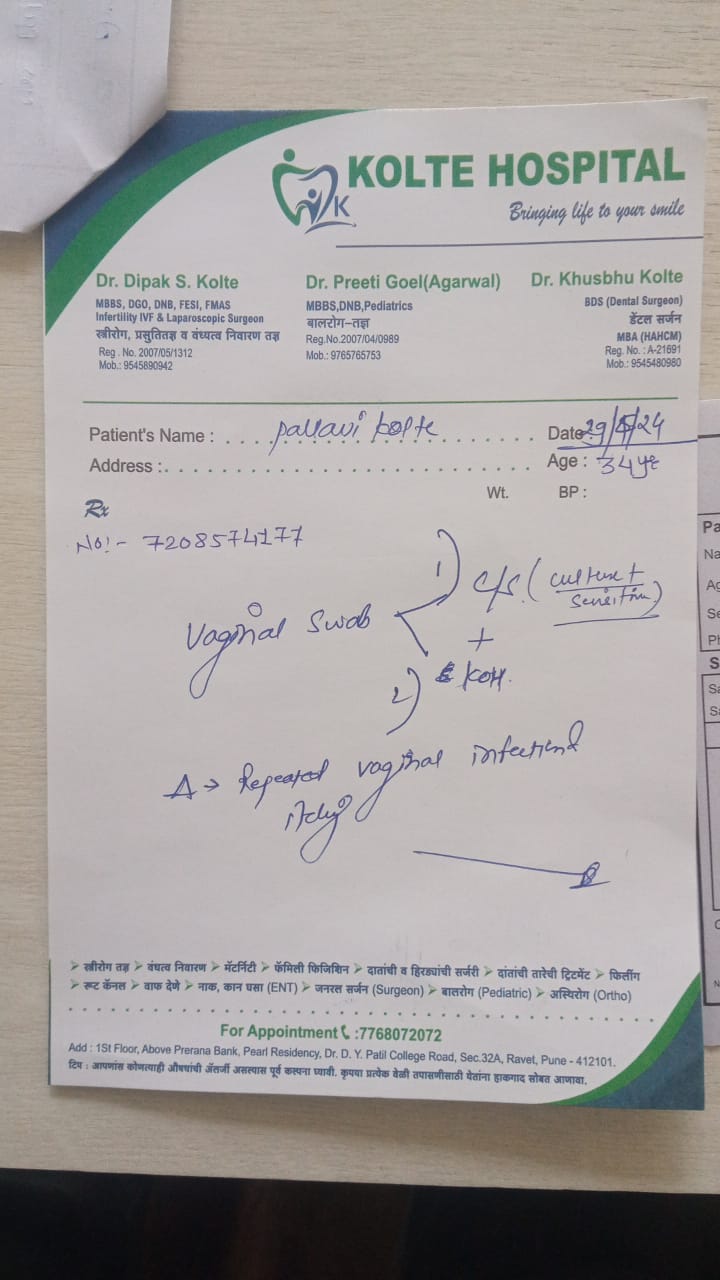 KOLTE HOSPITAL
Bringing life to your smile
K
Dr. Dipak S. Kolte
MBBS, DGO, DNB, FESI, FMAS
Infertility IVF & Laparoscopic Surgeon
स्त्रीरोग, प्रसुतितज्ञ व वंध्यत्व निवारण तज्ञ
Reg . No. 2007/05/1312
Mob.: 9545890942
Dr. Preeti Goel(Agarwal)
MBBS,DNB,Pediatrics
बालरोग-तज्ञ
Reg.No.2007/04/0989
Mob.: 9765765753
Dr. Khusbhu Kolte
BDS (Dental Surgeon)
डेंटल सर्जन
MBA (HAHCM)
Reg. No. : A-21691
Mob.: 9545480980
Patient's Name : Pallavi Kolte Date 29/5/24
Address : Age : 34 yr
Wt. BP :
Rx
No:- 7208574177
Vaginal Swab
1) C/S. (culture + sensitivity)
+
2) KOH.
Δ → Repeated vaginal infection &
itching
➢ स्त्रीरोग तज्ञ ➢ वंधत्व निवारण ➢ मॅटर्निटी ➢ फॅमिली फिजिशिन ➢ दातांची व हिरड्यांची सर्जरी ➢ दांतांची तारेची ट्रिटमेंट ➢ फिलींग
➢ रूट कॅनल ➢ वाफ देणे ➢ नाक, कान घसा (ENT) ➢ जनरल सर्जन (Surgeon) ➢ बालरोग (Pediatric) ➢ अस्थिरोग (Ortho)
For Appointment :7768072072
Add : 1St Floor, Above Prerana Bank, Pearl Residency, Dr. D. Y. Patil College Road, Sec.32A, Ravet, Pune - 412101.
टिप : आपणांस कोणत्याही औषधांची ॲलर्जी असल्यास पूर्व कल्पना घ्यावी. कृपया प्रत्येक वेळी तपासणीसाठी येतांना हाकागद सोबत आणावा.